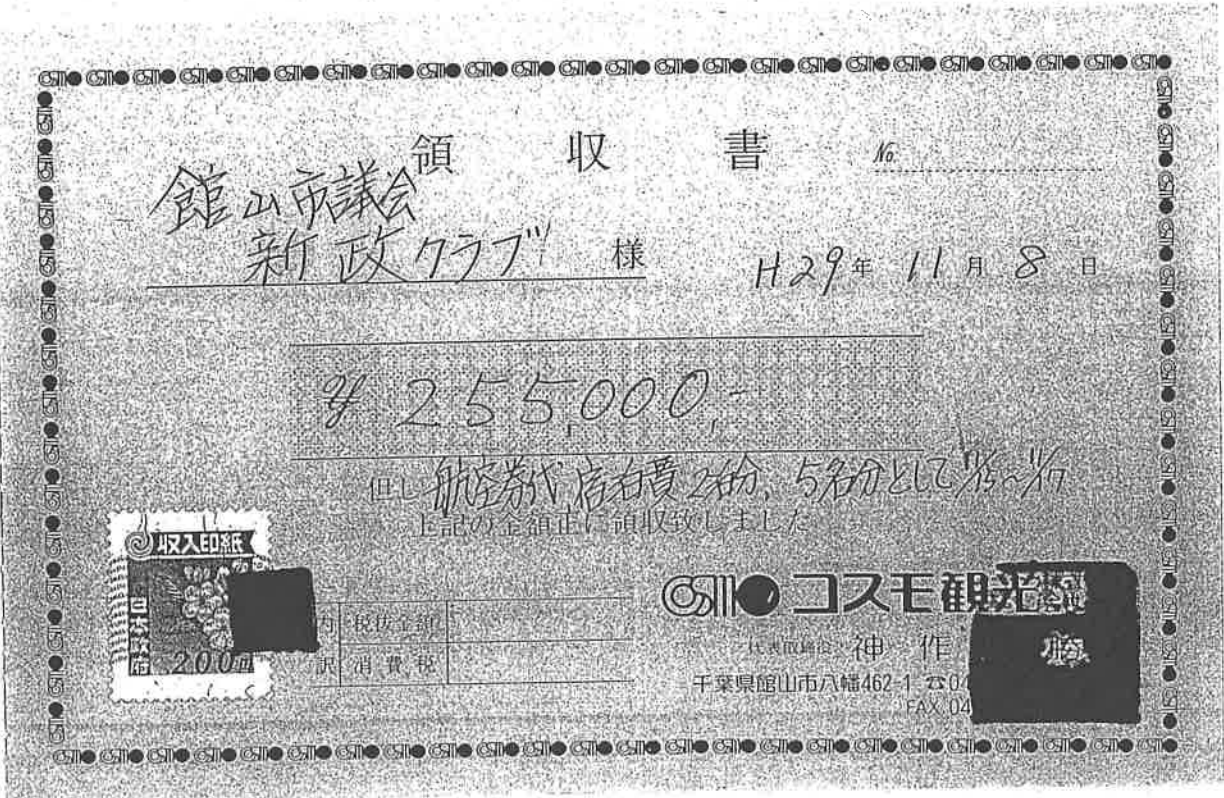 領収書 No.
館山市議会
新政クラブ 様
H29年 11月 8日
¥255,000,-
但し 航空券代、宿泊費2泊分、5名分として 11/15~11/17
上記の金額正に領収致しました
収入印紙
日本政府
200円
内訳 税抜金額
消費税
COSMO コスモ観光
代表取締役 神作 勝
千葉県館山市八幡462-1 ☎0
FAX.04